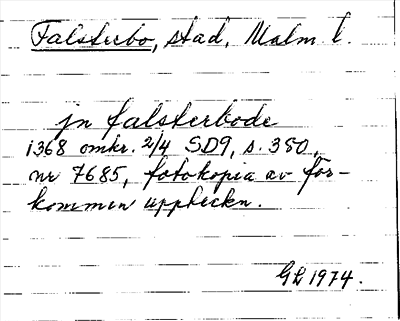 Falsterbo, stad, Malm. l.
jn falsterbode
1368 omkr. 2/4 SD9, s. 350,
nr 7685, fotokopia av för-
kommen uppteckn.
GL 1974.